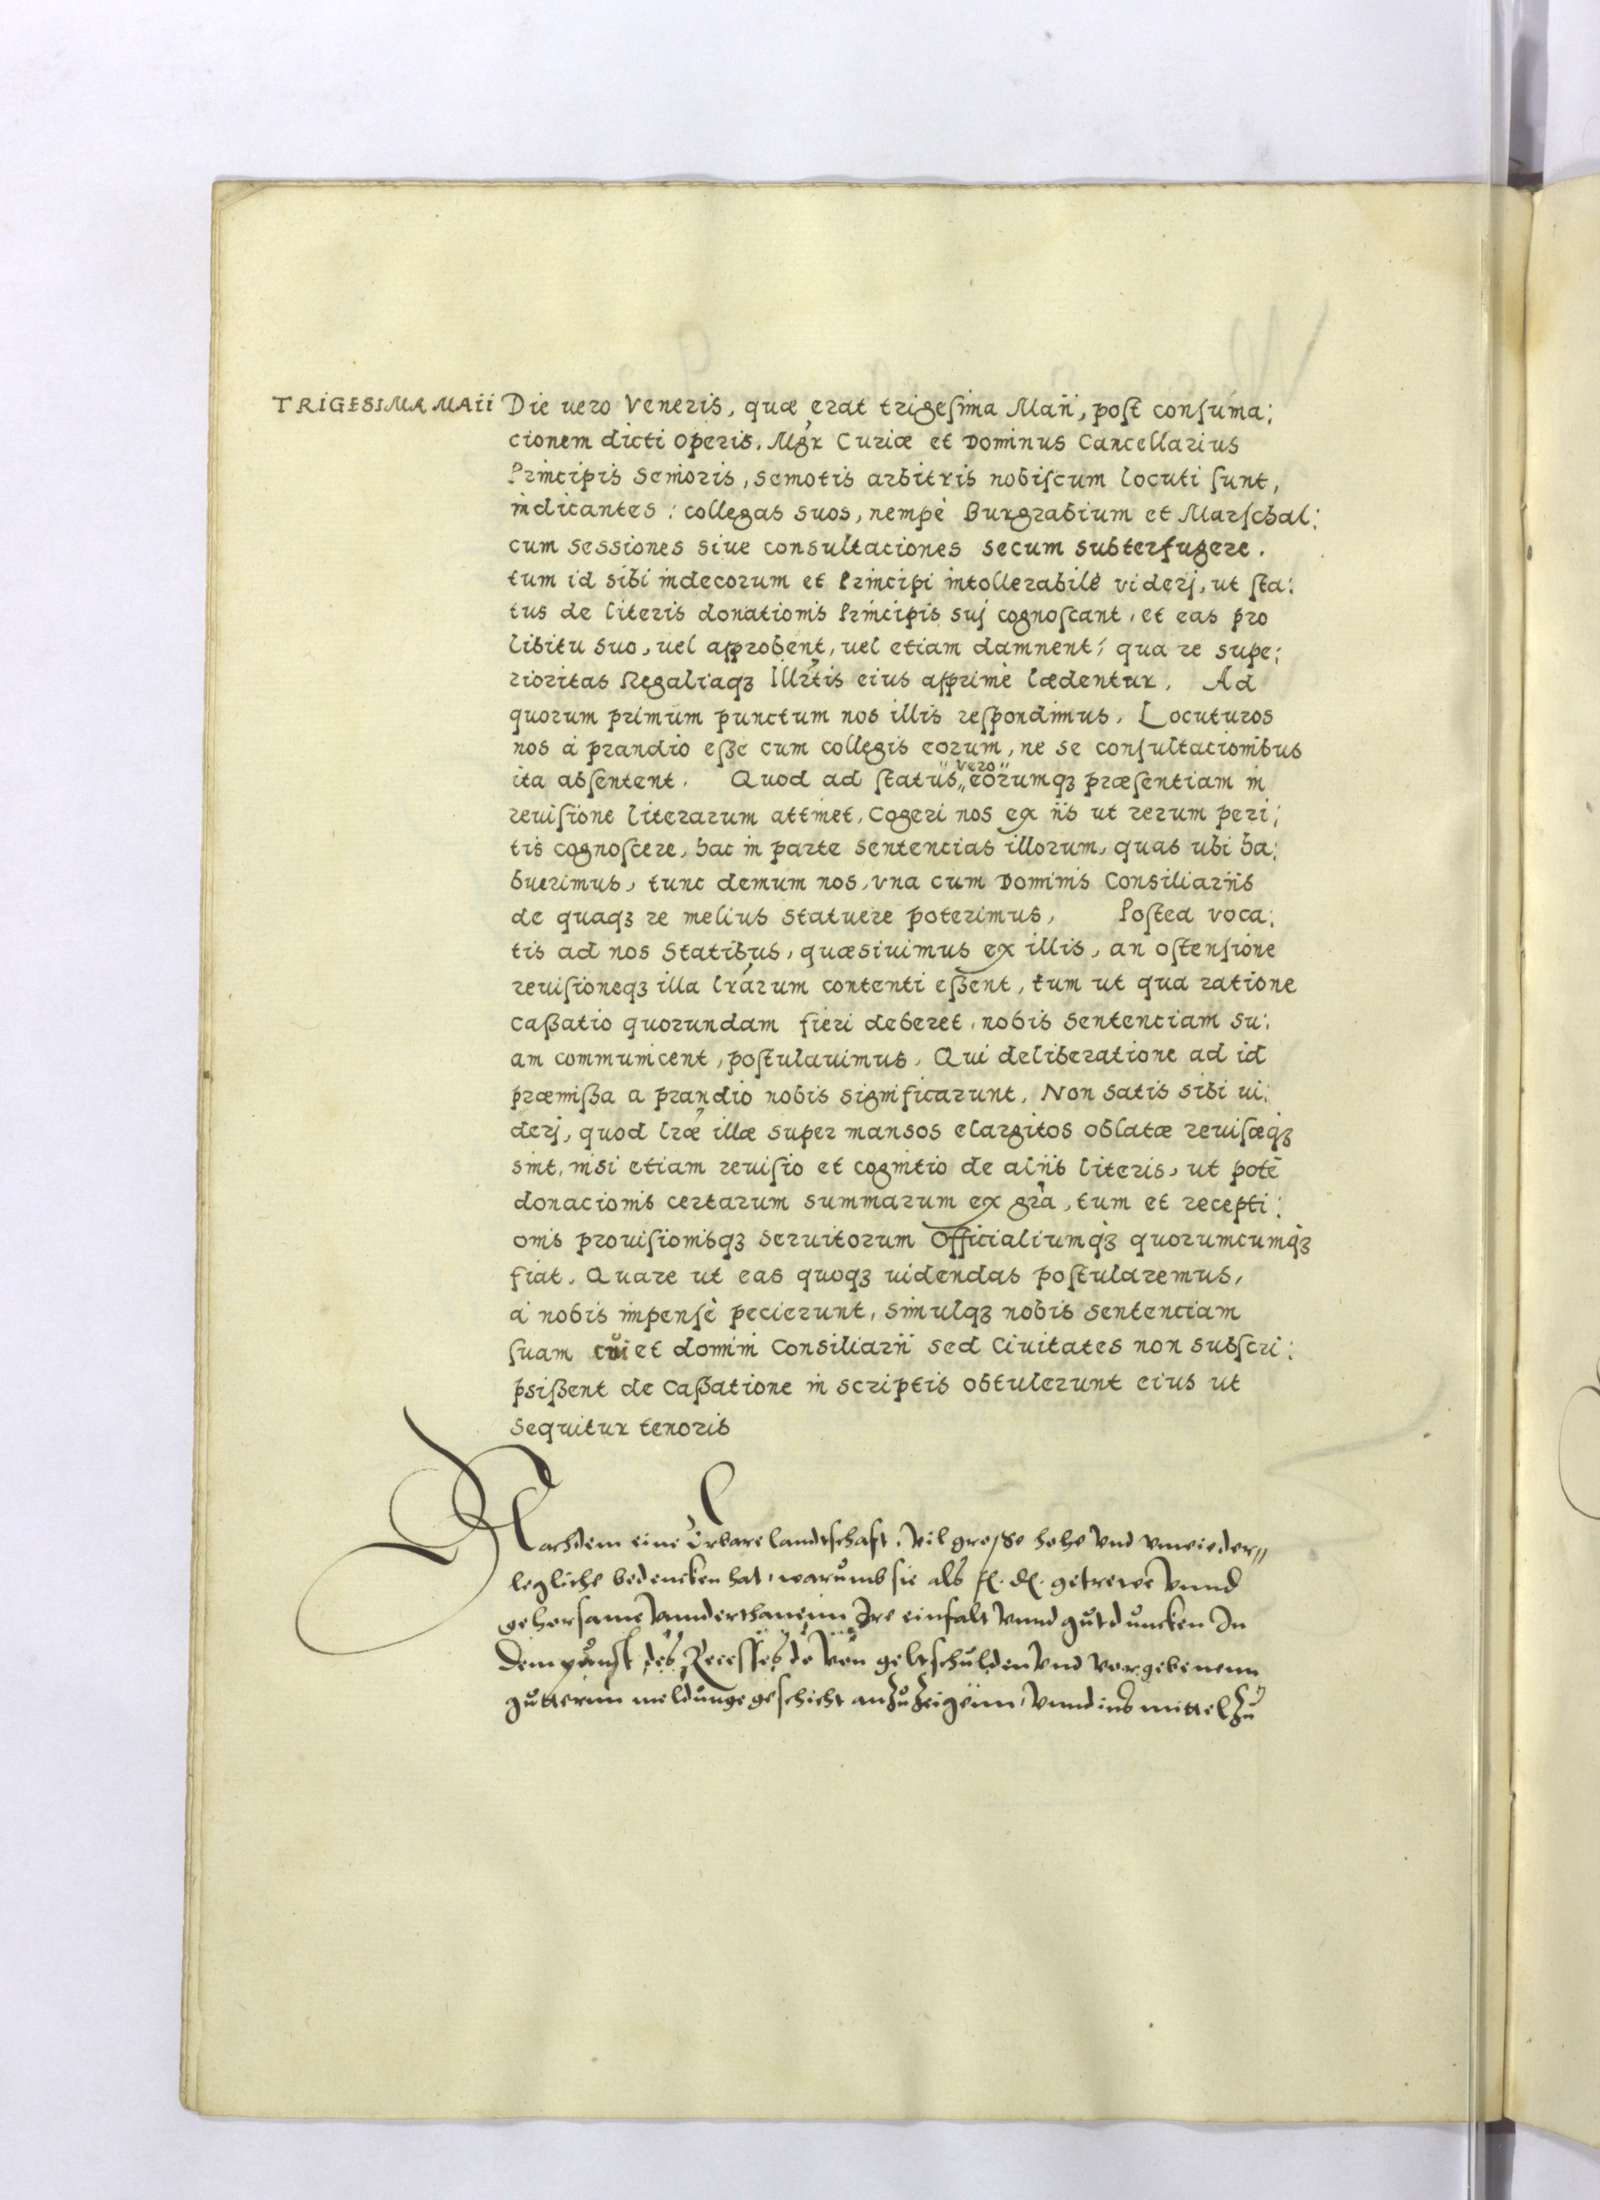 TRIGESIMA MAii Die uero Veneris, quæ erat trigesima Maii, post consuma:
cionem dicti operis. Mgr Curiæ et Dominus Cancellarius
Principis Senioris, semotis arbitris nobiscum locuti sunt,
indicantes: collegas suos, nempè Burgrabium et Marschal:
cum sessiones siue consultaciones secum subterfugere.
tum id sibi indecorum et Principi intollerabilè viderj, ut sta:
tus de literis donationis Principis suj cognoscant, et eas pro
libitu suo, uel approbent, uel etiam damnent, qua re supe:
rioritas Regaliaqꝫ Illrtis eius apprimè lædentur. Ad
quorum primum punctum nos illis respondimus, Locuturos
nos à prandio eße cum collegis eorum, ne se consultacionibus
ita absentent. Quod ad status vero eorumqꝫ præsentiam in
reuisione literarum attinet, Cogeri nos ex iis ut rerum peri:
tis cognoscere, hac in parte sentencias illorum, quas ubi ha:
buerimus, tunc demum nos, vna cum Dominis Consiliariis
de quaqꝫ re melius statuere poterimus, Postea voca:
tis ad nos Statibus, quæsiuimus ex illis, an ostensione
reuisioneqꝫ illa lrarum contenti eßent, tum ut qua ratione
caßatio quorundam fieri deberet, nobis sentenciam su:
am communicent, postulauimus, Qui deliberatione ad id
præmißa a prandio nobis significarunt, Non satis sibi ui:
derj, quod lræ illæ super mansos elargitos oblatæ reuisæqꝫ
sint, nisi etiam reuisio et cognitio de aliis literis, ut potè
donacionis certarum summarum ex gra, tum et recepti:
onis prouisionisqꝫ seruitorum Officialiumqꝫ quorumcumqꝫ
fiat. Quare ut eas quoqꝫ uidendas postularemus,
à nobis impensè pecierunt, simulqꝫ nobis sentenciam
suam cui et domini Consiliarii sed Ciuitates non subscri:
psißent de Caßatione in scriptis obtulerunt eius ut
sequitur tenoris
Nachdem eine Erbare landtschaft, vil große hohe vnd vnwieder〃
legliche bedencken hat, warumb sie als f. d. getrewe vnnd
gehorsame vnnderthanenn Jre einfalt vnnd gutduncken Jn
dem punct des Recesses do von geltschulden vnd vorgebenenn
gutternn meldunge geschicht anzuzeigenn, vnnd ins mittel zu